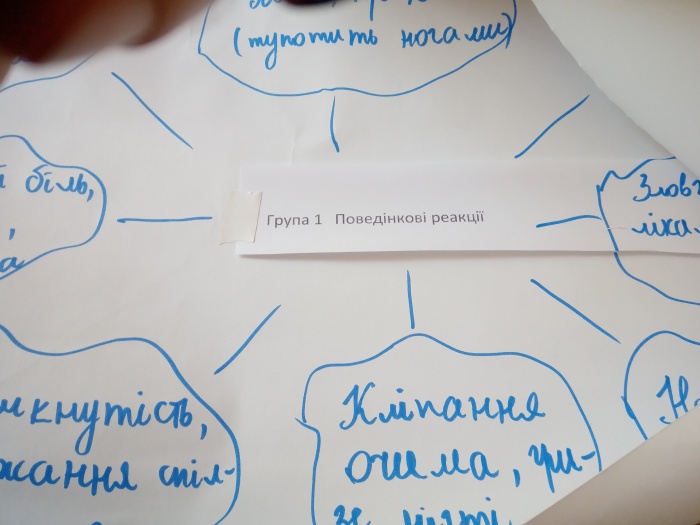 (тупотить ногами)
біль,
Група 1 Поведінкові реакції
Зловж
ліка
мкнутість,
жання спіл-
Кліпання
очима, гри-
зе нігті
Н